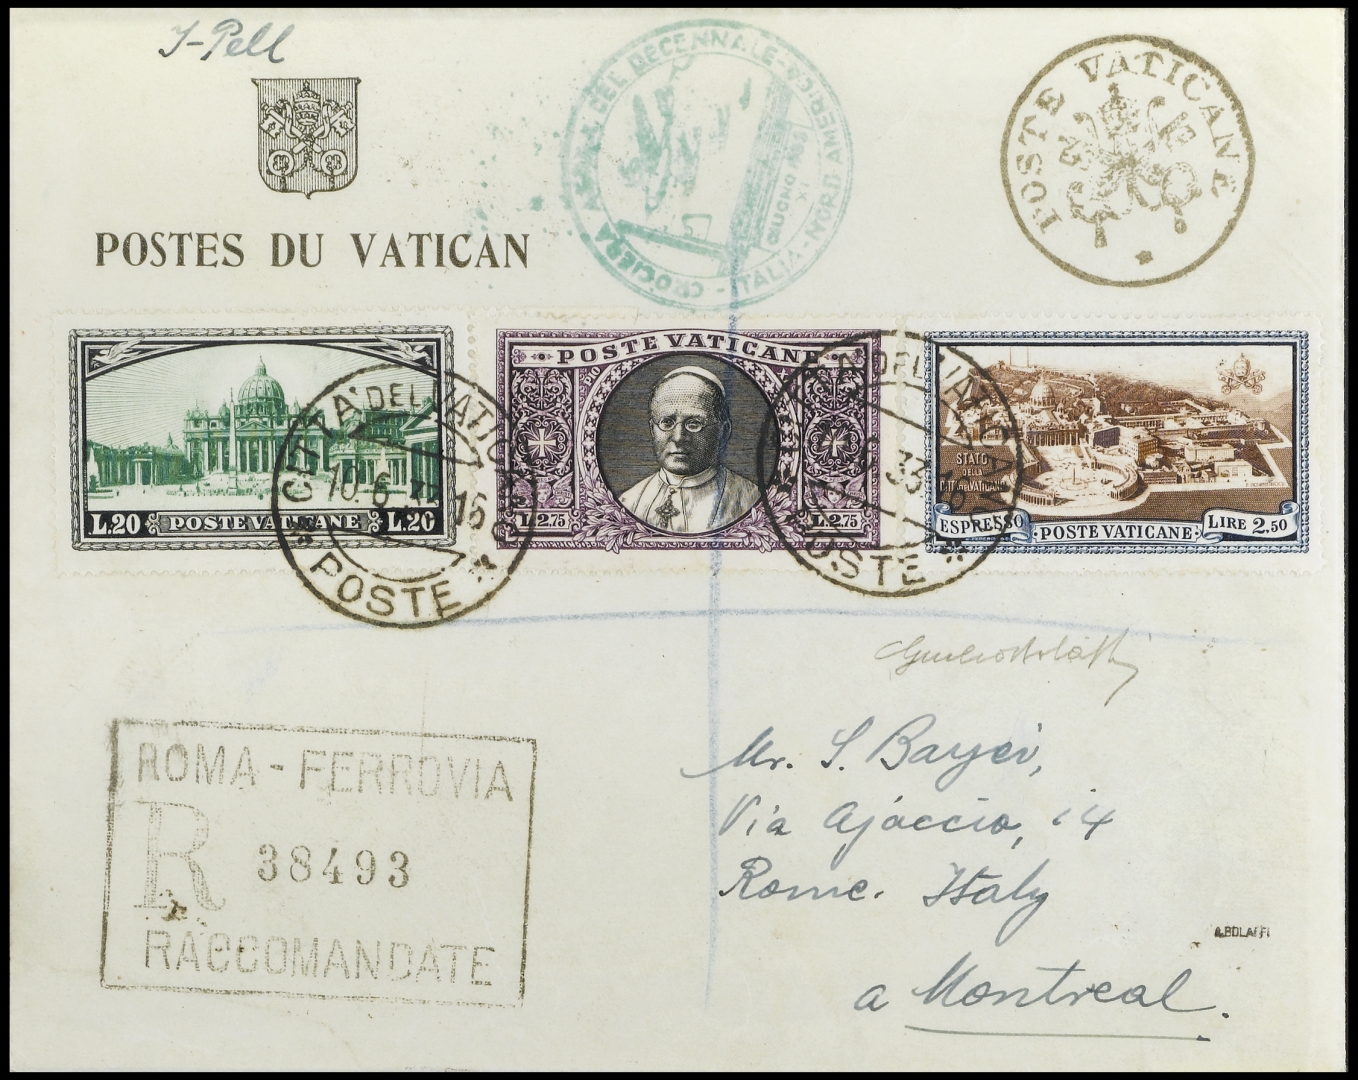 I-Pell
POSTES DU VATICAN
CROCIERA AEREA DEL DECENNALE - ITALIA - NORD AMERICA -
GIUGNO
XI
POSTE VATICANE
L.20 POSTE VATICANE L.20
POSTE VATICANE
L 2.75 L 2.75
STATO
DELLA
CITTÀ DEL VATICANO
ESPRESSO POSTE VATICANE LIRE 2.50
CITTA' DEL VATICANO
10-6- 16
POSTE
CITTA' DEL VATICANO
33
POSTE
ROMA - FERROVIA
R 38493
RACCOMANDATE
Mr. S. Bayer,
Via Ajaccio, 14
Rome. Italy
A.BOLAFFI
a Montreal.